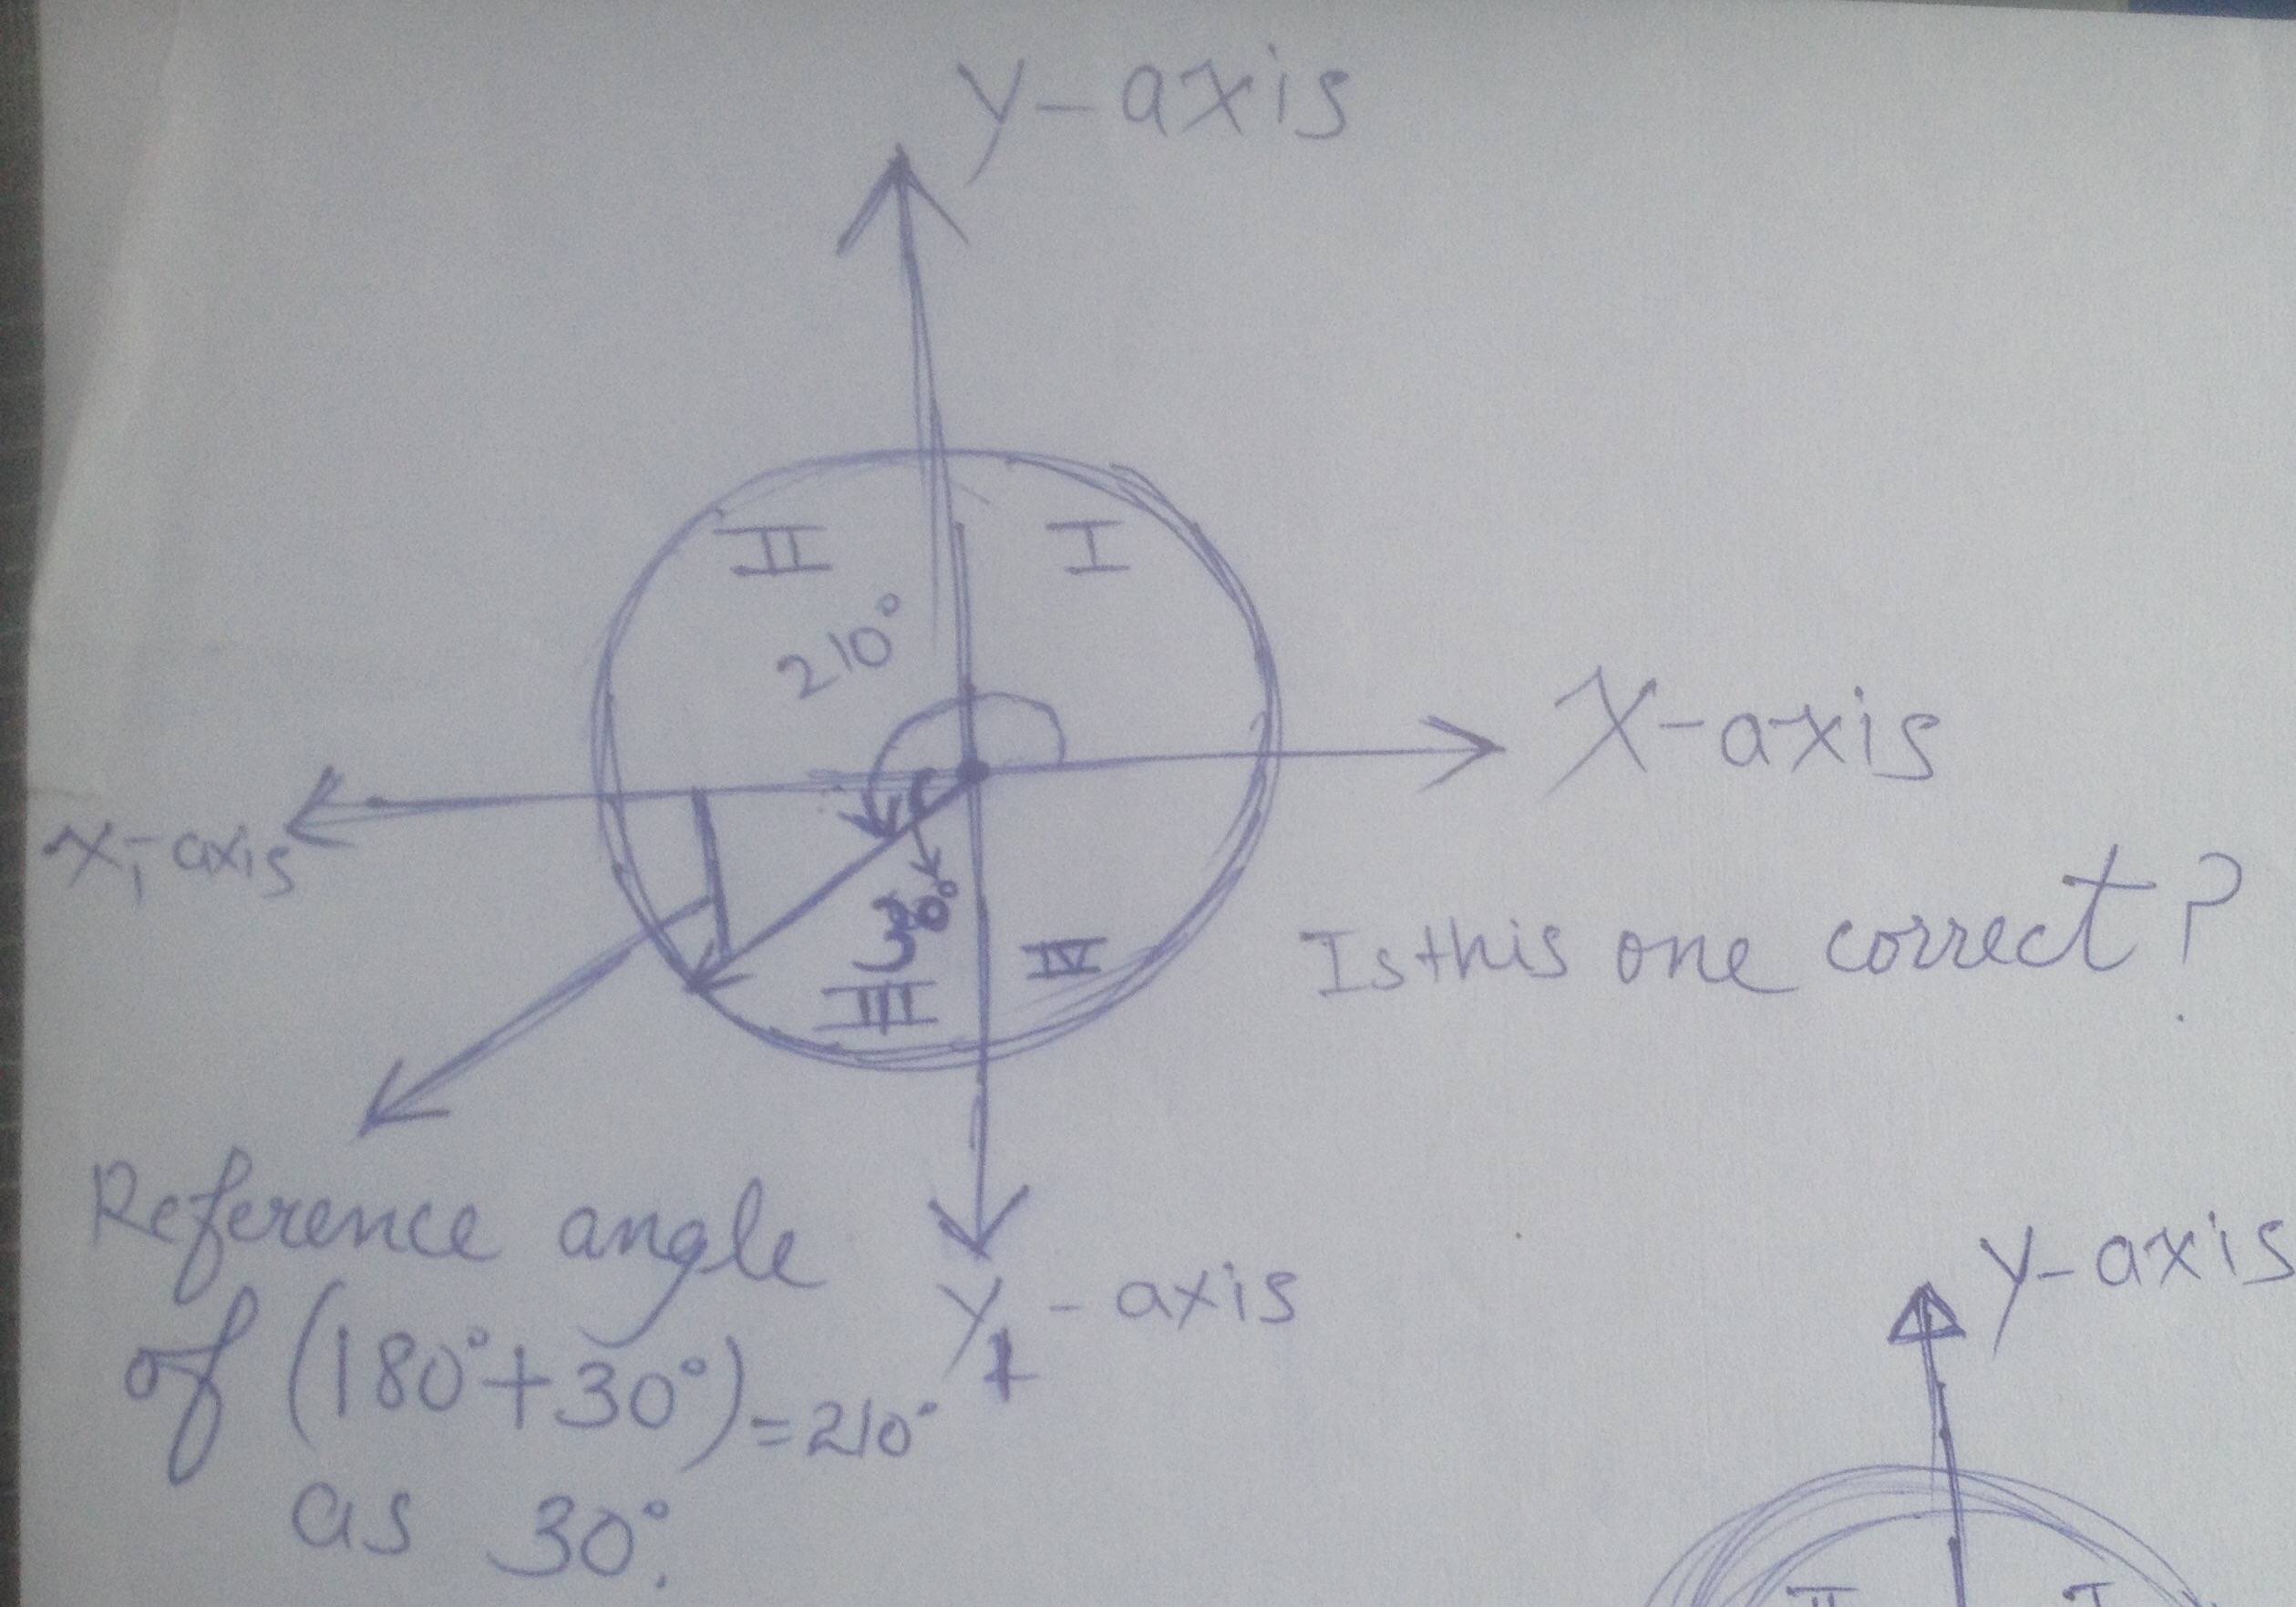 y-axis
II
I
210°
X-axis
x₁-axis
30°
III
IV
Is this one correct?
Reference angle
of (180°+30°)=210°
as 30°.
y₁-axis
y-axis
II
I